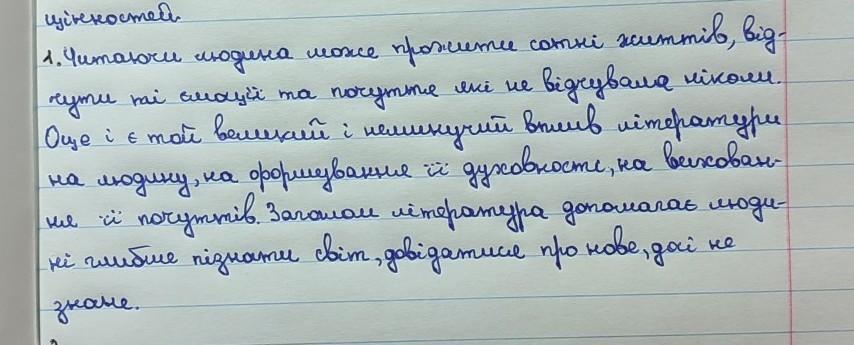 цінностей.
1. Читаючи людина може прожити сотні життів, від-
чути ті емоції та почуття які не відчувала ніколи.
Оце і є той великий і неминучий вплив літератури
на людину, на формування її духовності, на вихован-
ня її почуттів. Загалом література допомагає люди-
ні глибше пізнати світ, довідатися про нове, досі не
знане.